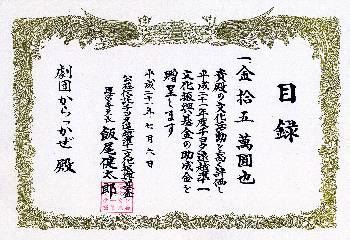 目録
一金 拾五 萬圓也
貴殿の文化活動を高く評し
平成二十一年度チヨタ遠越準一
文化振興基金の助成金を
贈呈します
平成二十一年 七月 六日
公益信託チヨタ遠越準一文化振興基金
運営委員長 飯尾健太郎
劇団からっかぜ 殿